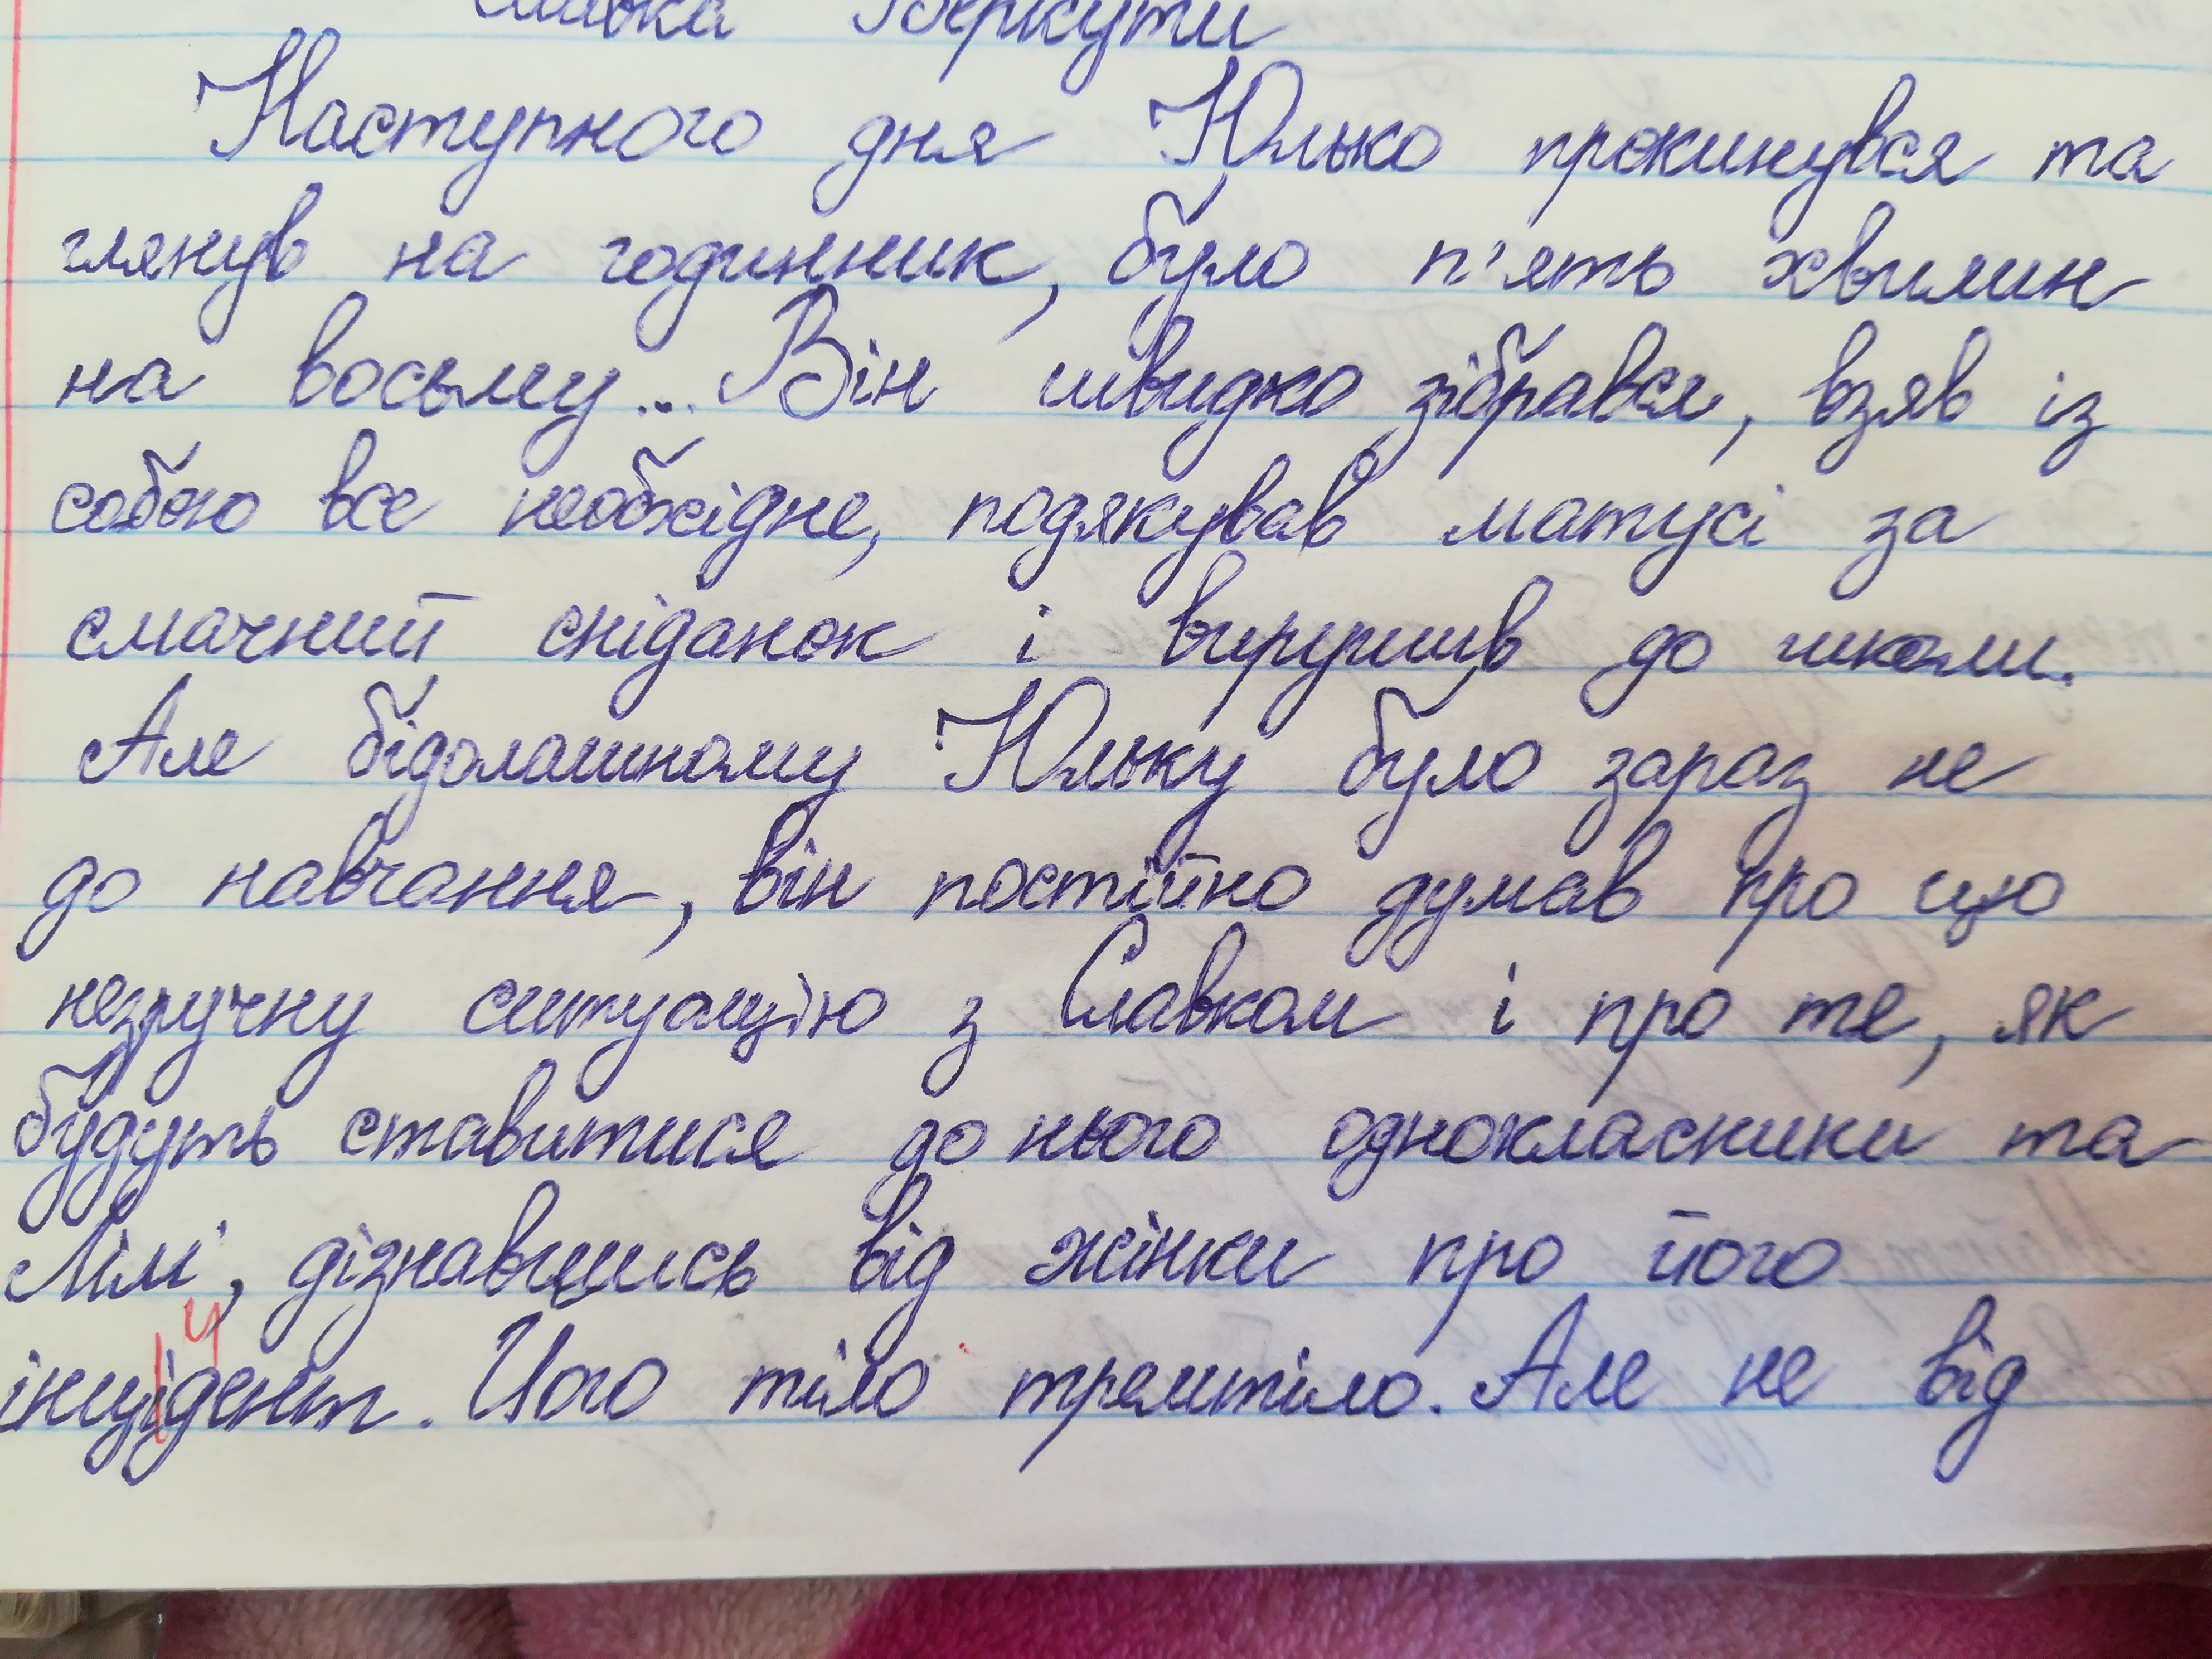 Славка Беркути
Наступного дня Юлько прокинувся та
глянув на годинник, було п'ять хвилин
на восьму... Він швидко зібрався, взяв із
собою все необхідне, подякував матусі за
смачний сніданок і вирушив до школи.
Але бідолашному Юльку було зараз не
до навчання, він постійно думав про цю
незручну ситуацію з Славком і про те, як
будуть ставитися до нього однокласники та
Лілі, дізнавшись від жінки про його
и
інціідент. Його тіло тремтіло. Але не від